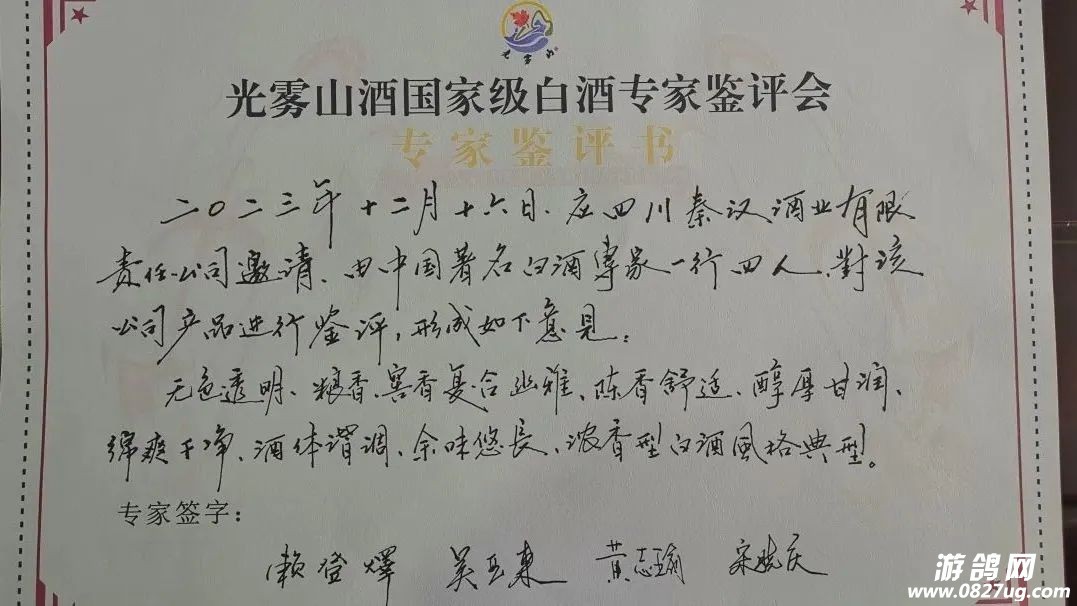 光雾山
光雾山酒国家级白酒专家鉴评会
专家鉴评书
二〇二三年十二月十六日、应四川秦汉酒业有限
责任公司邀请、由中国著名白酒專家一行四人、對该
公司产品进行鉴评，形成如下意見：
无色透明、粮香、窖香复合幽雅、陈香舒适、醇厚甘润、
绵爽干净、酒体谐调、余味悠長、浓香型白酒風格典型。
专家签字：
赖登燡 吴玉東 黄志瑜 宋晓庆
游鸽网
www.0827ug.com